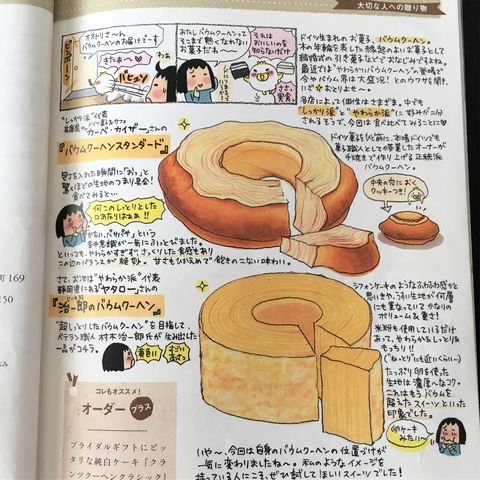 大切な人への贈り物
ピンポーン
オオトリさ〜ん
バウムクーヘンのお届けです
きたぁ〜
わぁ
あたし バウムクーヘンって
そこまで熱くなれない
お菓子だわ〜
それは
おいしいのを
知らないだけ
ドイツ生まれのお菓子、バウムクーヘン。
木の年輪を表した縁起のよいお菓子として
結婚式の引き菓子などでおなじみですよね。
最近では"やわらかいバウムクーヘン"の登場で
今やバウム界は大盛況!とのウワサを聞き、
各店によって個性はさまざま。中でも
"しっかり派"と"やわらか派"に好みが二分
されるそうで、今回は食べ比べてみることに
"しっかり派"代表
兵庫県
カーベ・カイザーさんの
『バウムクーヘンスタンダード』
ドイツ菓子ひと筋、本場ドイツでも
菓子職人としての修業したオーナーが
手焼きで作り上げる正統派
バウムクーヘン。
中央の穴におく
クッキーつき!
包丁を入れた瞬間に"おっ"と
驚くほどの生地のつまり具合!
食べてみると…
何このしっとりとした
口あたりはぁぁ!!
かたい、パサパサ、という
先入観が一気にふっとびました。
といっても、やわらかすぎず、さっくりした食感もあり
このバランスが絶妙。甘さもひかえめで飽きのこない味わい。
さて、お次は"やわらか派"代表
静岡県にある「ヤタロー」さんの
『治一郎のバウムクーヘン』
"超しっとりしたバウムクーヘン"を目指して、
ベテラン職人 村木治一郎氏が生み出した
一品がコチラ。
黄色い
すごい
太さ
シフォンケーキのようなふわふわ感かと
思いきや、うすい生地が何層
にも重なっていてかなりの
ボリューム&重さ!
米粉も使用しているだけ
あって、やわらか&しっとり
&もっちり!!
("ねっとり"にも近いくらい)
たっぷり卵を使った
生地は濃厚へなコク。
これはもうバウムを
超えたスイーツといった
印象でした。
卵ケーキ
みたい〜
いや〜、今回は自身のバウムクーヘンの位置づけが
一気に変わりましたね〜。私のようなイメージを
持っている人にこそ、ぜひ試してほしいスイーツでした!
コレもオススメ!
オーダープラス
ブライダルギフトにピッ
タリな純白ケーキ「クラ
ンツクーヘンクラシック」
町 169
150